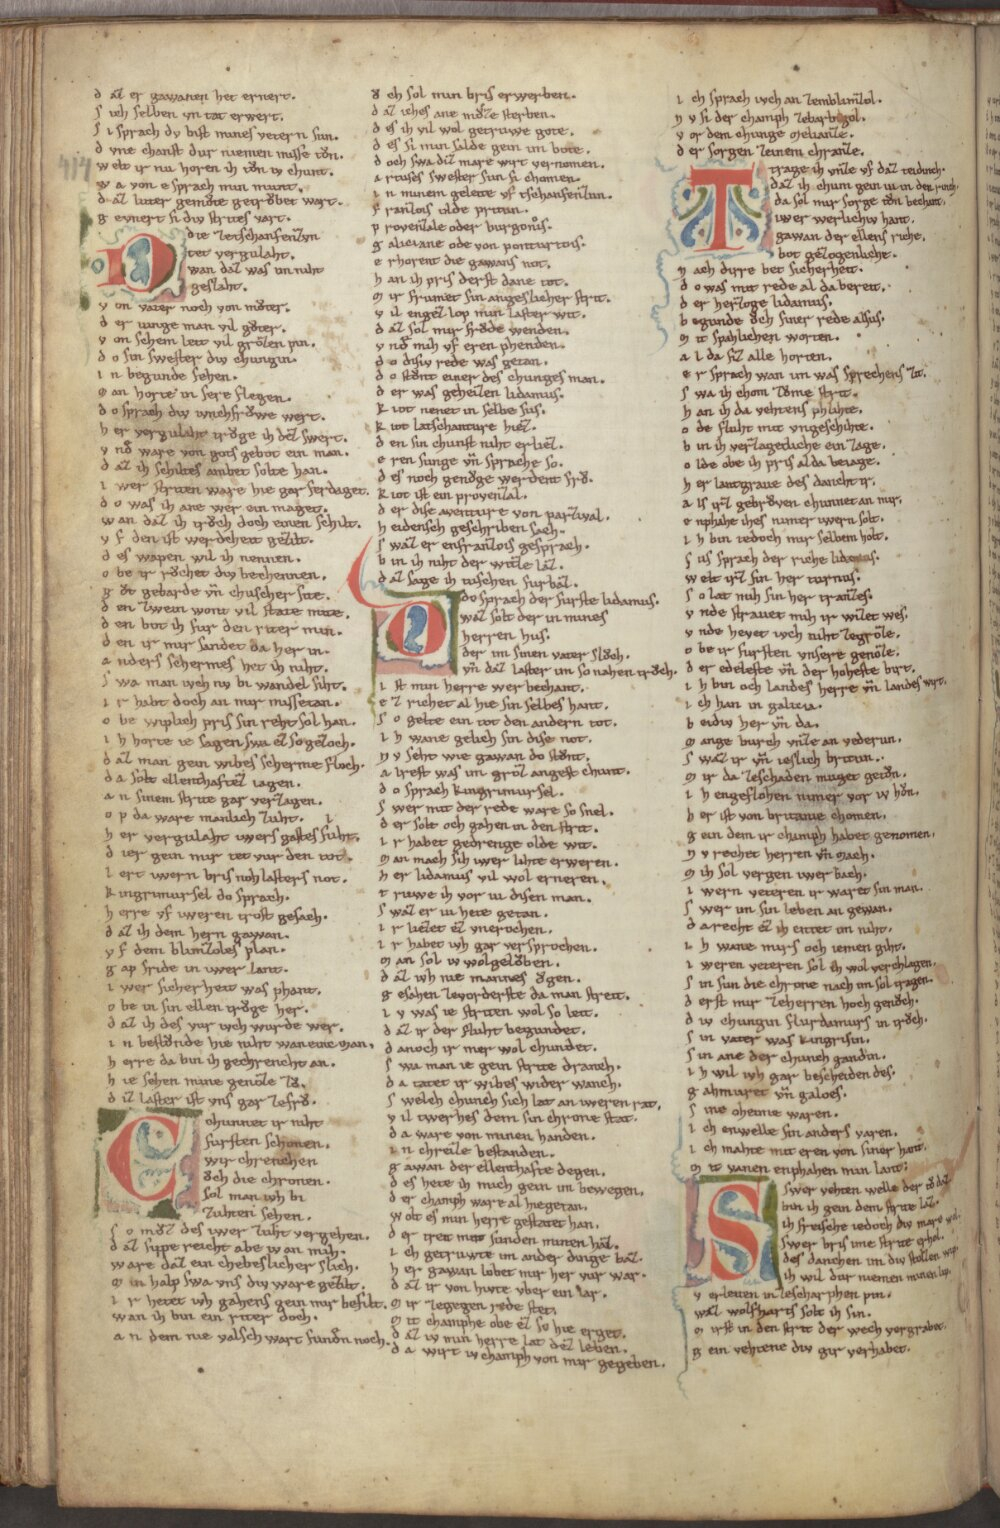 d az er gawanen het ernert.
S ich selben vn tat erwert.
S i sprach dv bist mines vetern sun.
d vne chanst dur niemen misse tuon.
w elt ir nu horen ih tuon iv chunt.
w a von e sprach min munt.
d az luter gemuote getruobet wart.
g evnert si div strites vart.
414
D die zetschanfenzvn
tet vergulaht.
wan daz was im niht
geslaht.
v on vater noch von muoter.
d er iunge man vil guoter.
v on schem leit vil grozen pin.
d o sin swester div chungin.
i n begunde sehen.
m an horte in sere flegen.
d o sprach div iunchfrowe wert.
h er vergulaht truoge ih dez swert.
v nd ware von gots gebot ein man.
d az ih schiltes ambet solte han.
i wer striten ware hie gar ferdaget.
d o was ih ane wer ein maget.
w an daz ih truoch doch einen schilt.
v f den ist werdeheit gezilt.
d es wapen wil ih nennen.
o be ir ruochet div bechennen.
g uot gebarde vn chuscher site.
d en zwein wont vil state mite.
d en bot ih fur den riter min.
d en ir mir sandet da her in.
a nders schermes het ih niht.
S wa man iuch nv bi wandel siht.
i r habt doch an mir missetan.
o be wiplich pris sin reht sol han.
i h horte ie sagen swa ez so gezoch.
d az man gein wibes scherme floch.
d a solt ellenthaftez iagen.
a n sinem strite gar verzagen.
o p da ware manlich zuht.
h er vergulaht iuwers gastes fluht.
d ier gein mir tet vur den tot.
l ert iuwern bris noh lasters not.
k ingrimursel do sprach.
h erre vf iuweren trost gesach.
d az ih dem hern gawan.
v f dem blimzoles plan.
g ap fride in iuwer lant.
i wer sicherheit was phant.
o be in sin ellen truoge her.
d az ih des vur iuch wurde wer.
i n bestuonde hie niht wan eine man.
h erre da bin ih gechrenchet an.
h ie sehen mine genoze zuo.
d iz laster ist vns gar ze fruo.
C chunnet ir niht
fursten schonen.
wir chrenchen
ouch die chronen.
sol man iuh bi
zuhten sehen.
s o muoz des iuwer zuht veriehen.
d az sippe reicht abe iu an mih.
ware daz ein chebeslicher slich.
m in halp swa vns div ware gezilt.
i r hetet iuh gahens gein mir bevilt.
wan ih bin ein riter doch.
a n dem nie valsch wart funden noch.
o ch sol min bris erwerben.
d az ihes ane muoze sterben.
d es ih vil wol getruwe gote.
d es si min salde gein im bote.
d och swa diz mare wirt vernomen.
a rtuses swester sun si chomen.
i n minem geleite vf tschanfenzun.
f ranzois olde pritun.
p rovenzale oder burgonois.
g aliciane ode von ponturtois.
e rhorent die gawans not.
h an ih pris derst dane tot.
m ir frumet sin angeslicher strit.
v il engez lop min laster wit.
d az sol mir froude wenden.
v nd mih vf eren phenden.
d o disiv rede was getan.
d o stuont einer des chunges man.
d er was geheizen lidamus.
k iot nenet in selbe sus.
k iot latschanture hiez.
d en sin chunst niht erliez.
e ren sunge vn sprache so.
d es noch genoge werdent fro.
k iot ist ein provenzal.
d er dise aventure von parzival.
h eidensch geschriben sach.
s waz er enfranzois gesprach.
b in ih niht der witze laz.
d az sage ih tuschen furbaz.
D do sprach der furste lidamus.
waz solt der in mines
herren hus.
der im sinen vater sluoch.
vn daz laster im so nahen truoch.
i st min herre wer bechant.
e z richet al hie sin selbes hant.
s o gelte ein tot den andern tot.
i h wane gelich sin dise not.
n v seht wie gawan do stuont.
a lrest was im groz angest chunt.
d o sprach kingrimursel.
s wer mit der rede ware so snel.
d er solt och gahen in den strit.
i r habet gedrenge olde wit.
m an mach sih iuwer lihte erweren.
h er lidamus vil wol erneren.
t ruwe ih vor iu disen man.
s waz er iu hete getan.
i r liezet ez vnerochen.
i r habet iuh gar versprochen.
m an sol iu wol gelouben.
d az iuh nie mannes ougen.
g esahen ze vorderste da man streit.
i v was ie striten wol so leit.
d az ir der fluht begundet.
d anoch ir mer wol chundet.
s wa man ie gein strite dranch.
d a tatet ir wibes wider wanch.
s welch chunch sich lat an iweren rat,
v il twerhes dem sin chrone stat.
d a ware von minen handen.
i n chreize bestanden.
g awan der ellenthafte degen.
d es hete ih mich gein im bewegen,
d er champh ware al hie getan.
w olt es min herre gestatet han.
d er treit mit sunden minen haz.
i ch getruwte im ander dinge baz.
h er gawan lobet mir her vur war.
d az ir von hivte vber ein iar.
m ir ze gegen rede stet.
m it champhe obe ez so hie erget.
d az iu min herre lat dez leben.
d a wirt iu champh von mir gegeben.
i ch sprach iuch an zemblimzol.
n v si der champh zebarbigol.
v or dem chunge meliantze.
d er sorgen zeinem chrantze.
T trage ih vnze vf daz teidinch.
daz ih chum gein iu in den rinch
da sol mir sorge tuon bechant.
iuwer werlichiv hant.
gawan der ellens riche.
bot gezogenliche.
n ach dirre bet sicherheit.
d o was mit rede al da bereit.
d er herzoge lidamus.
b egunde ouch siner rede alsus.
m it spahlichen worten.
a l da siz alle horten.
e r sprach wan im was sprechens zit.
s wa ih chom zuome strit.
h an ih da vehtens phlihte.
o de fluht mit vngeschihte.
b in ih verzagetliche ein zage.
o lde obe ih pris al da beiage.
h er lantgrave des danchet ir.
a ls irz gebruoven chunnet an mir.
e nphahe ihes nimer iuwern solt.
i h bin iedoch mir selbem holt.
s us sprach der riche lidamus.
welt irz sin her turnus.
s o lat mih sin her tranzes.
v nde strafet mih ir wizet wes.
v nde hevet iuch niht zegroze.
o be ir fursten vnsere genoze.
d er edeleste vn der hoheste birt.
i h bin och landes herre vn landes wirt.
i ch han in galicia.
b eidiv her vn da.
m ange burch vnze an vedrun.
s waz ir vn ieslich britun.
m ir da ze schaden muget getuon.
i h engeflohen nimer vor iu huon.
h er ist von britanie chomen.
g ein dem ir champh habet genomen.
n v rechet herren vn mach.
m ih sol vergen iuwer bach.
i wern veteren ir waret sin man.
s wer im sin leben an gewan.
d a recht ez ih entet im niht.
i h wane mirs och iemen giht.
i weren veteren sol ih wol verchlagen.
s in sun die chrone nach im sol tragen.
d erst mir zeherren hoch genuoch.
d iv chungin flurdamurs in truoch.
s in vater was kingrisin.
s in ane der chunch gandin.
i h wil iuh gar bescheiden des.
g ahmuret vn galoes.
s ine oheime waren.
i ch enwelle sin anders varen.
i ch mahte mit eren von siner hant.
m it vanen enphahen min lant:
S swer vehten welle der tuo daz
bin ih gein dem strite laz.
ih freische iedoch div mare wol.
swer bris ime strite erhol.
des danchen im div stolzen wip.
ih wil dur niemen minen lip.
v erleiten in zescharphen pin.
waz wolfharts solt ih sin.
m irst in den strit der wech vergrabet.
g ein vehtene div gir verhabet.